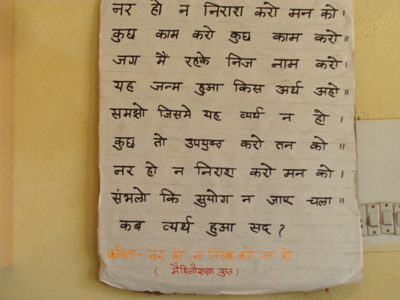 नर हो न निराश करो मन को ।
कुछ काम करो कुछ काम करो ॥
जग मैं रहके निज नाम करो ।
यह जन्म हुआ किस अर्थ अहो ॥
समझो जिसमे यह व्यर्थ न हो ।
कुछ तो उपयुक्त करो तन को ॥
नर हो न निराश करो मन को ।
संभलो कि सुयोग न जाए चला ॥
कब व्यर्थ हुआ सद ?
कविता - नर हो न निराश करो मन को
( मैथिलीशरण गुप्त )